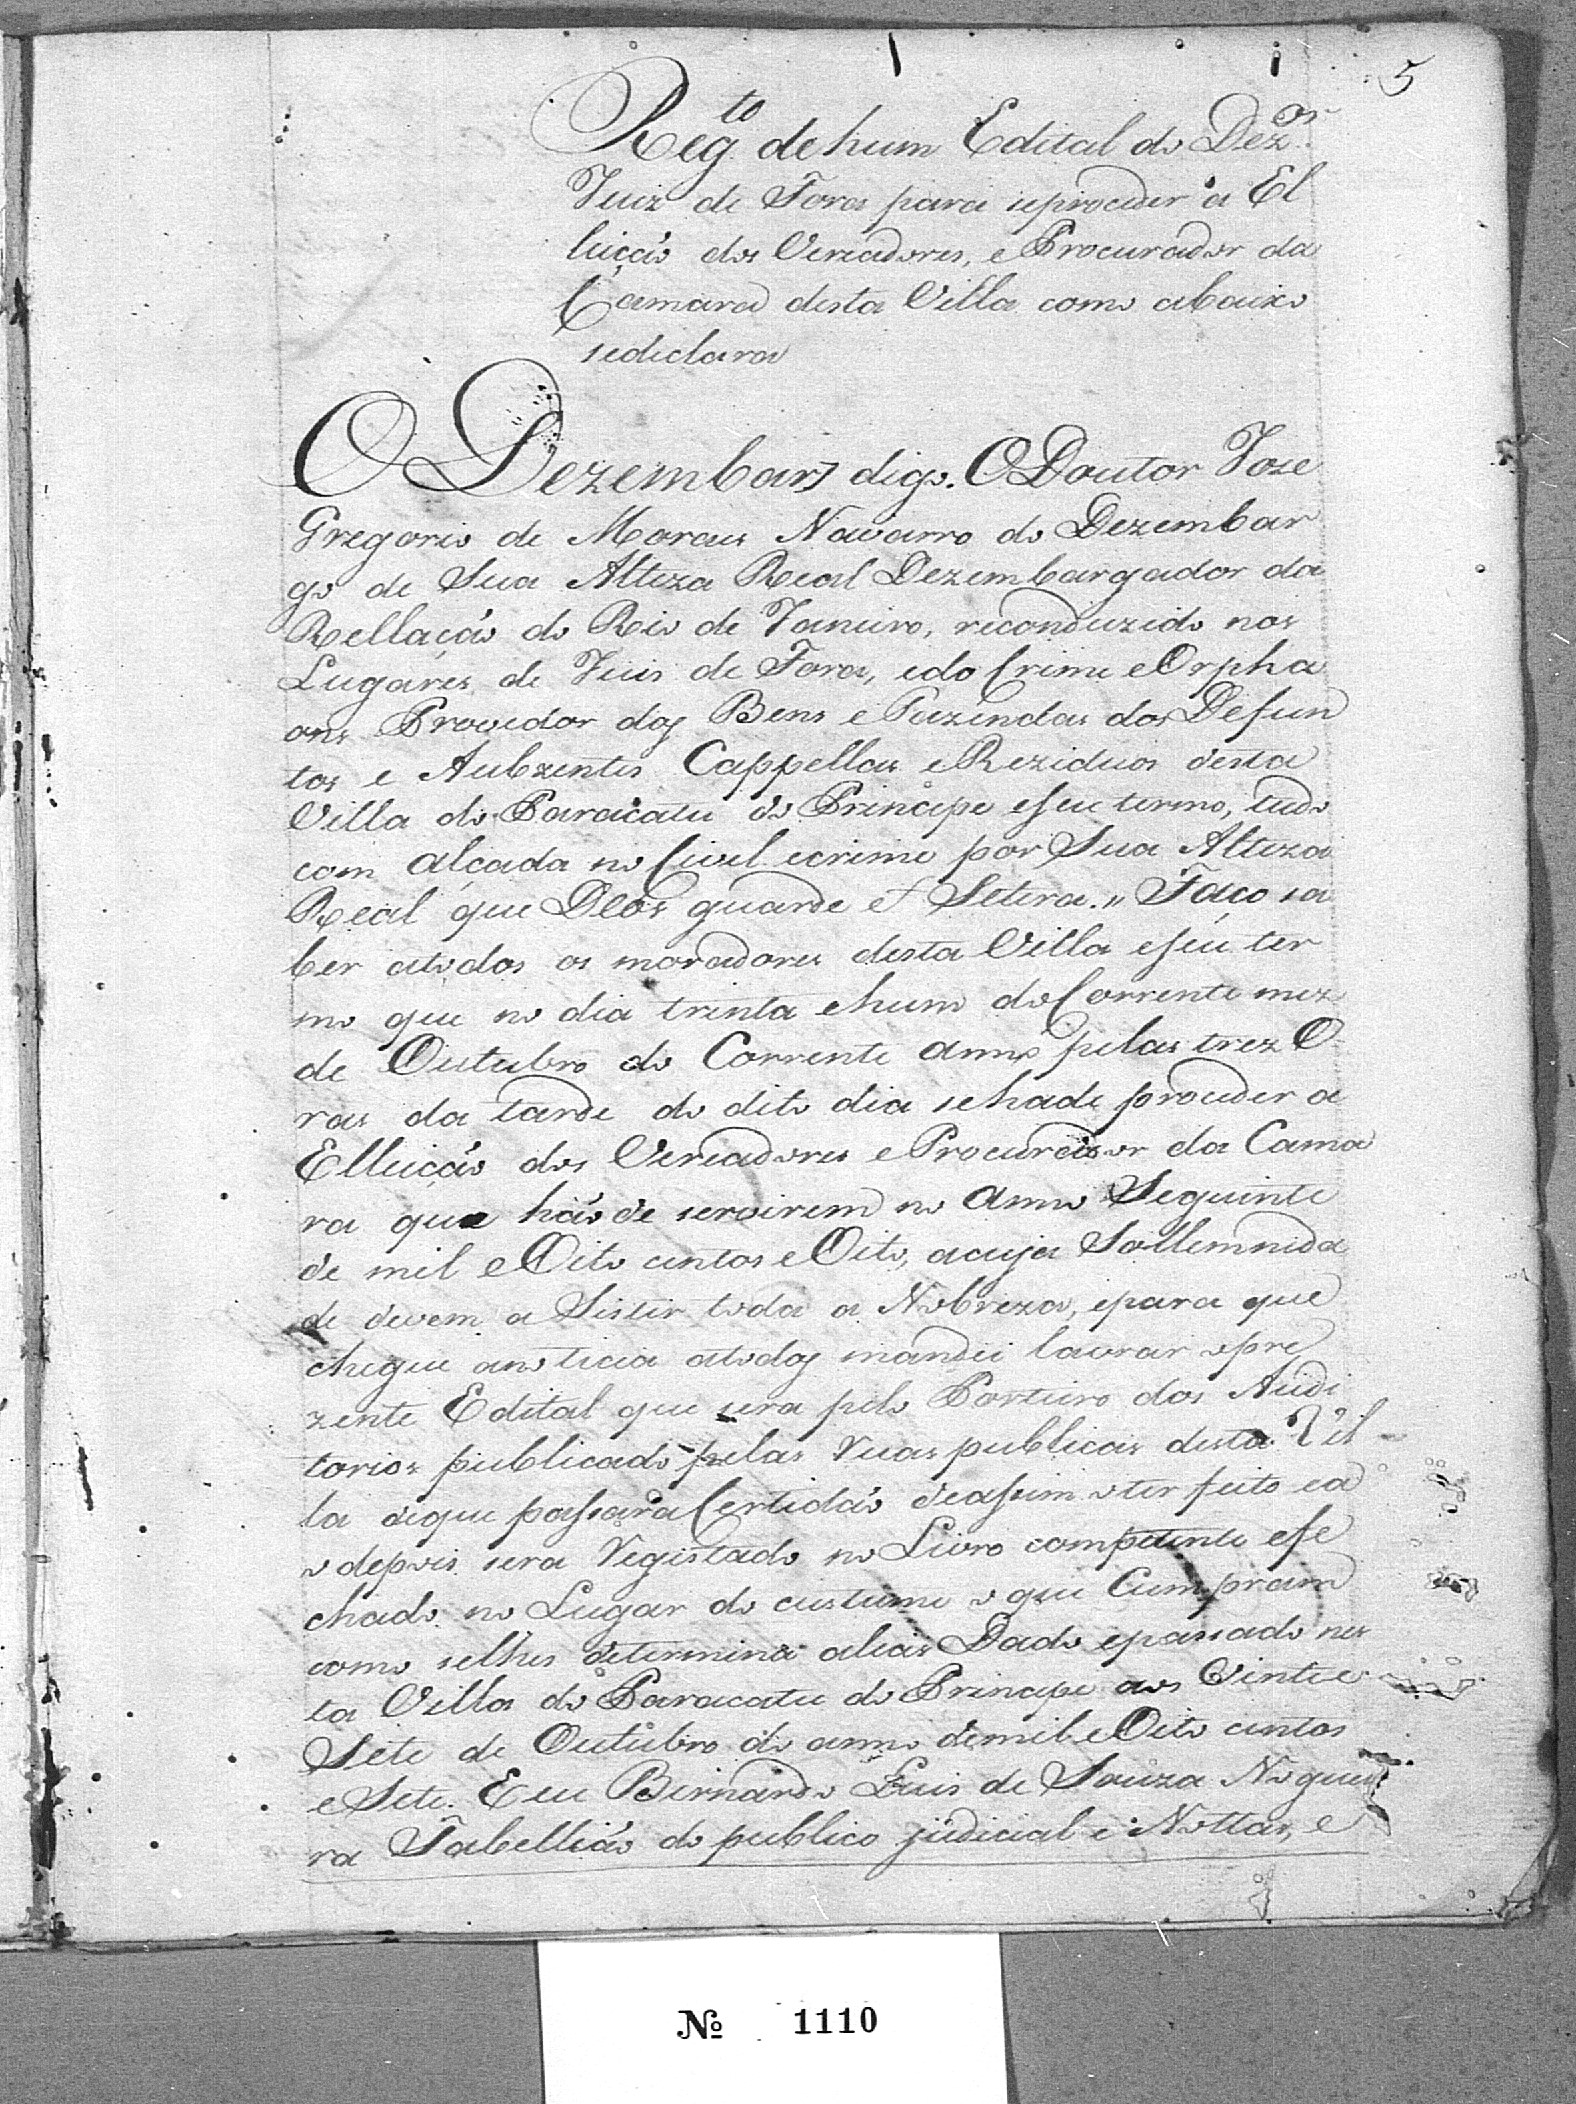 5
Reg.to de hum Edital do Dez.or
Juiz de Fora para seproceder a El
leiçaõ dos Vereadores, e Procurador da
Camara desta Villa como abaixo
sedeclara
O Dezembarg digo. O Doutor Joze
Gregorio de Moraes Navarro do Dezembar
go de Sua Alteza Real Dezembargador da
Rellaçaõ do Rio de Janeiro, reconduzido nos
Lugares de Juis de Fora, edo Crime eOrpha
ons Provedor dos Bens e Fazendas dos Defun
tos e Aubzentes Cappellas eReziduos desta
Villa do Paracatu do Principe eseu termo, tudo
com alçada no Civel ecrime por Sua Alteza
Real que Deos guarde et Setera.,, Faço sa
ber atodos os moradores desta Villa eseu ter
mo que no dia trinta ehum do Corrente mez
de Outubro do Corrente anno pelas trez O
ras da tarde do dito dia sehade proceder a
Elleiçaõ dos Vereadores eProcurador da Cama
ra que haõ de servirem no Anno Seguinte
de mil eOito centos eOito, acuja Sollemnida
de devem a Sistir toda a Nobreza, epara que
chegue anoticia atodos mandei lavrar opre
zente Edital que sera pelo Porteiro dos Audi
torios publicado pelas Ruas publicas desta Vil
la deque passara Certidaõ deassim oter feito ea
o depois sera Registado no Livro competente efe
chado no Lugar do custume o que Cumpram
como selhes determina alias Dado epassado nes
ta Villa do Paracatu do Principe aos Vintee
Sete de Outubro do anno demil eOito centos
eSete. E eu Bernardo Luis de Souza Noguei
ra Tabelliaõ do publico judicial e Nottas, e
№ 1110